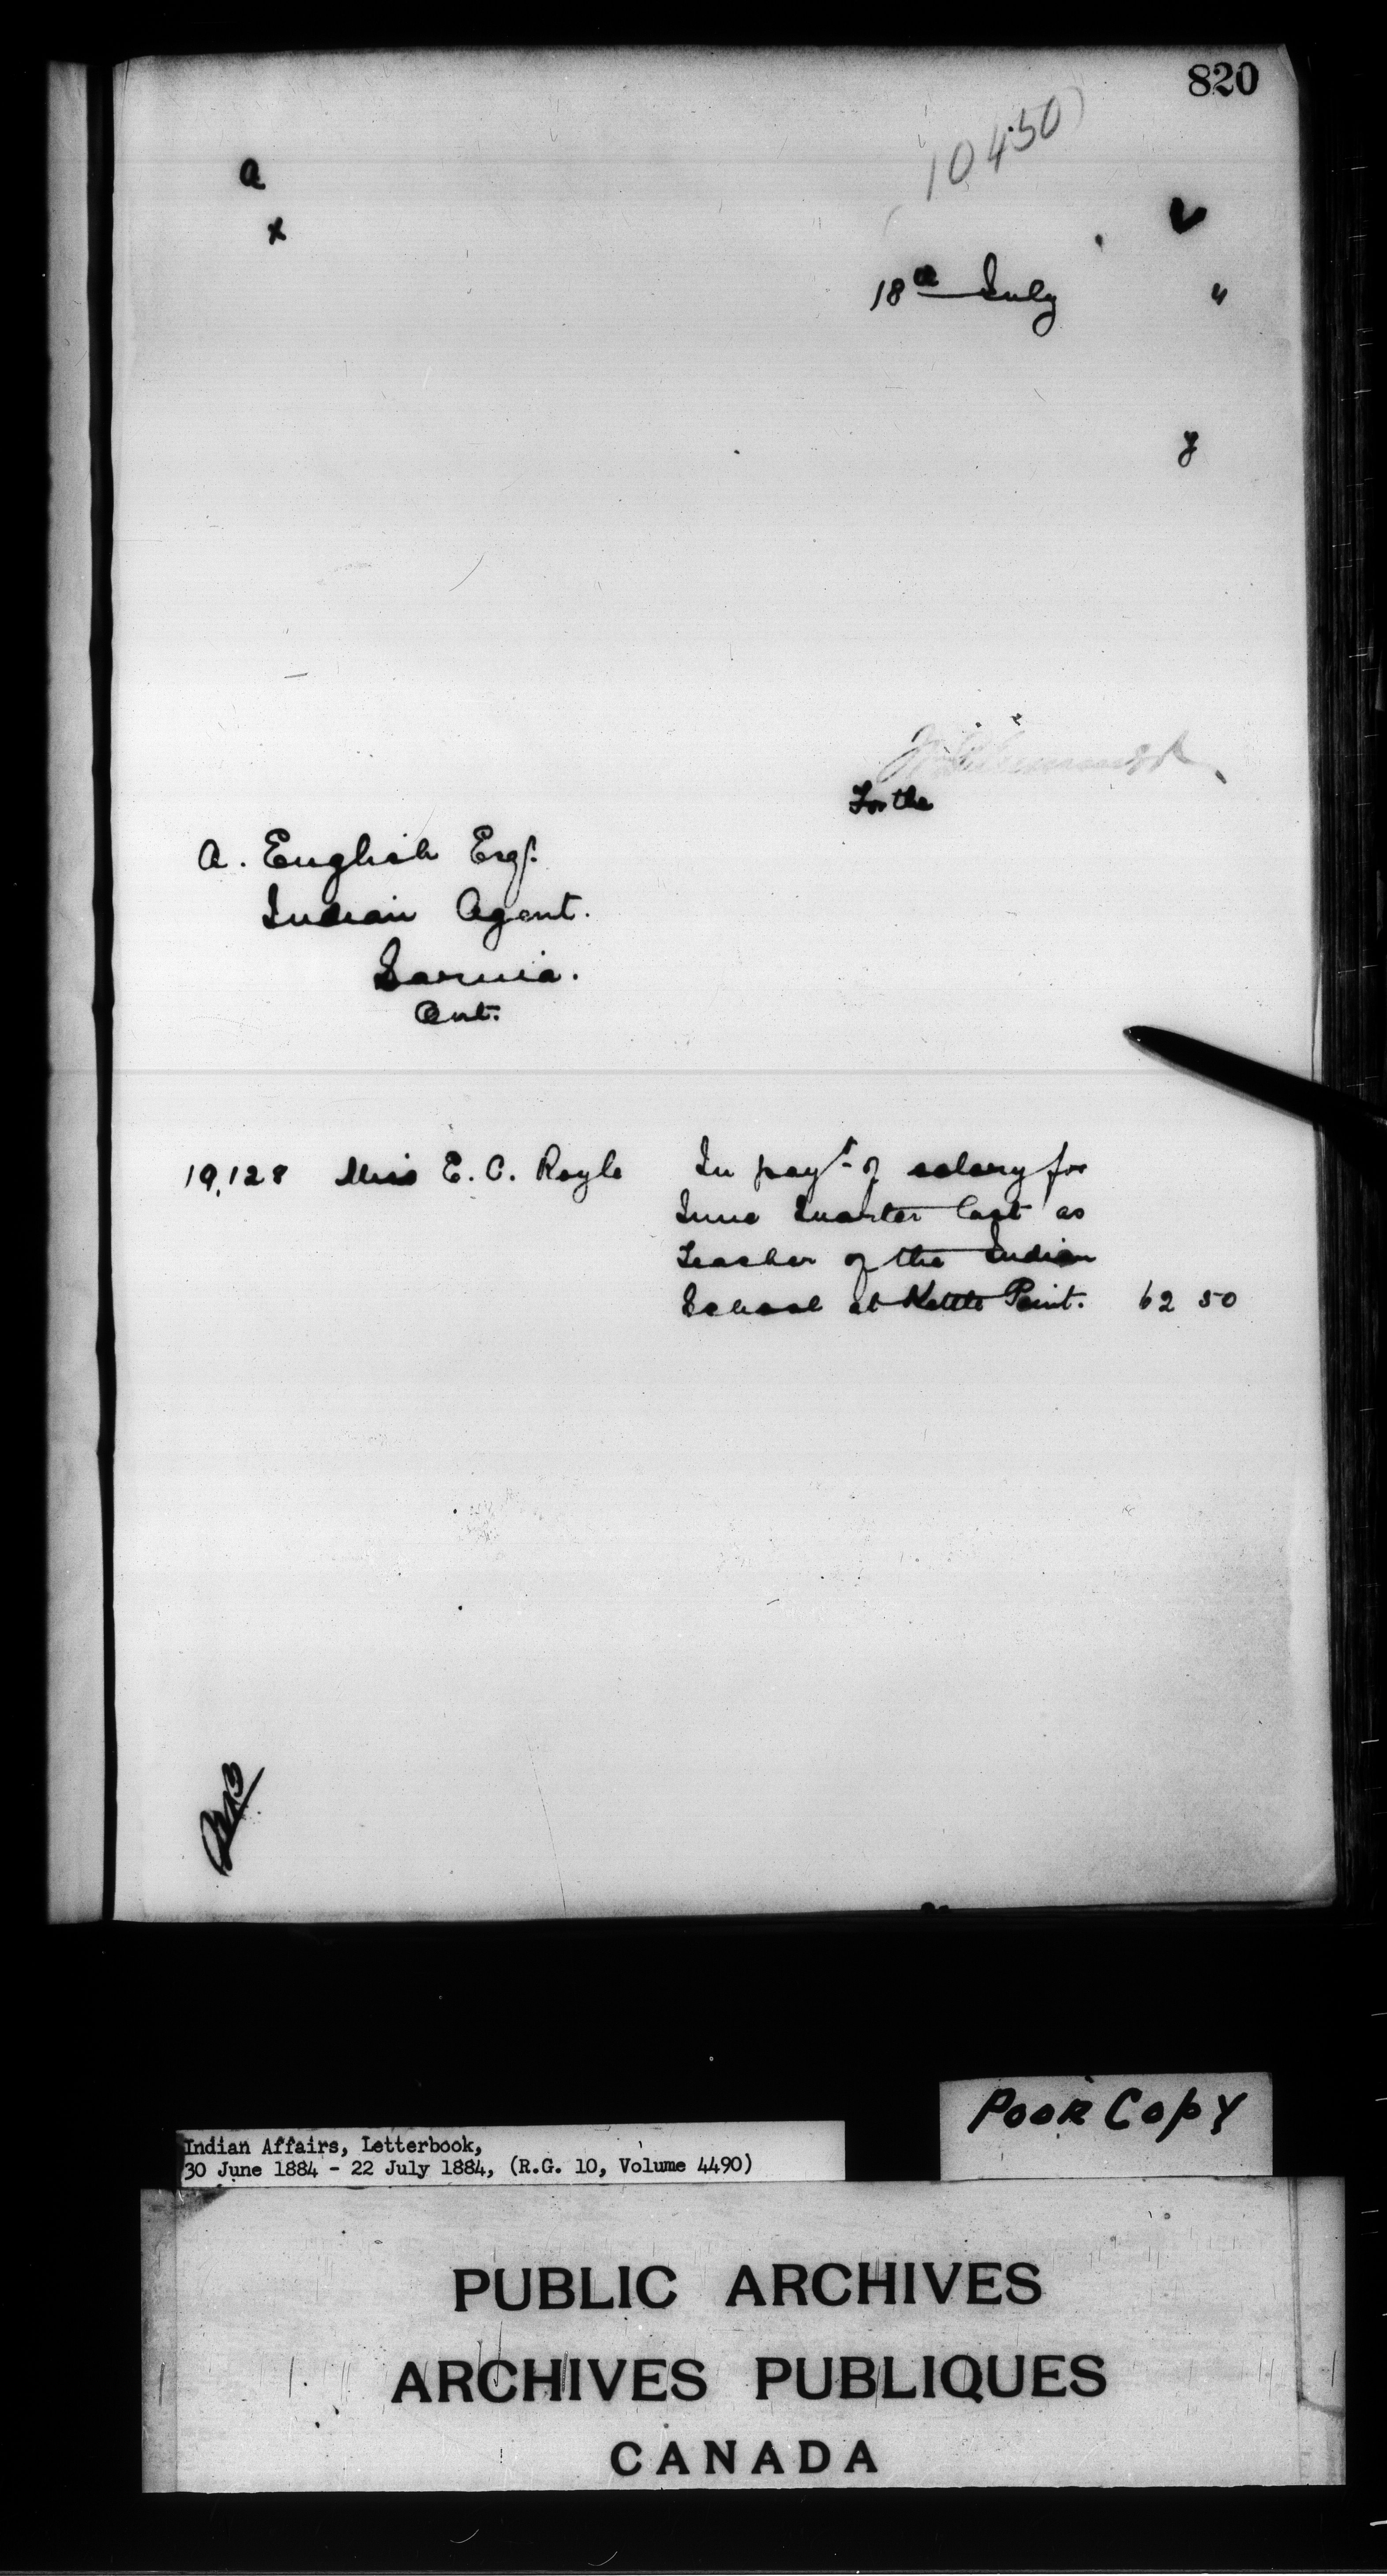 820
10450
a
x
18th July "
y
For the
A. English Esq.
Indian Agent.
Sarnia.
Ont.
19,128 Miss E. C. Royle In payt of salary for
June Quarter last as
Teacher of the Indian
School at Kettle Point. 62 50
Poor Copy
Indian Affairs, Letterbook,
30 June 1884 - 22 July 1884, (R.G. 10, Volume 4490)
PUBLIC ARCHIVES
ARCHIVES PUBLIQUES
CANADA